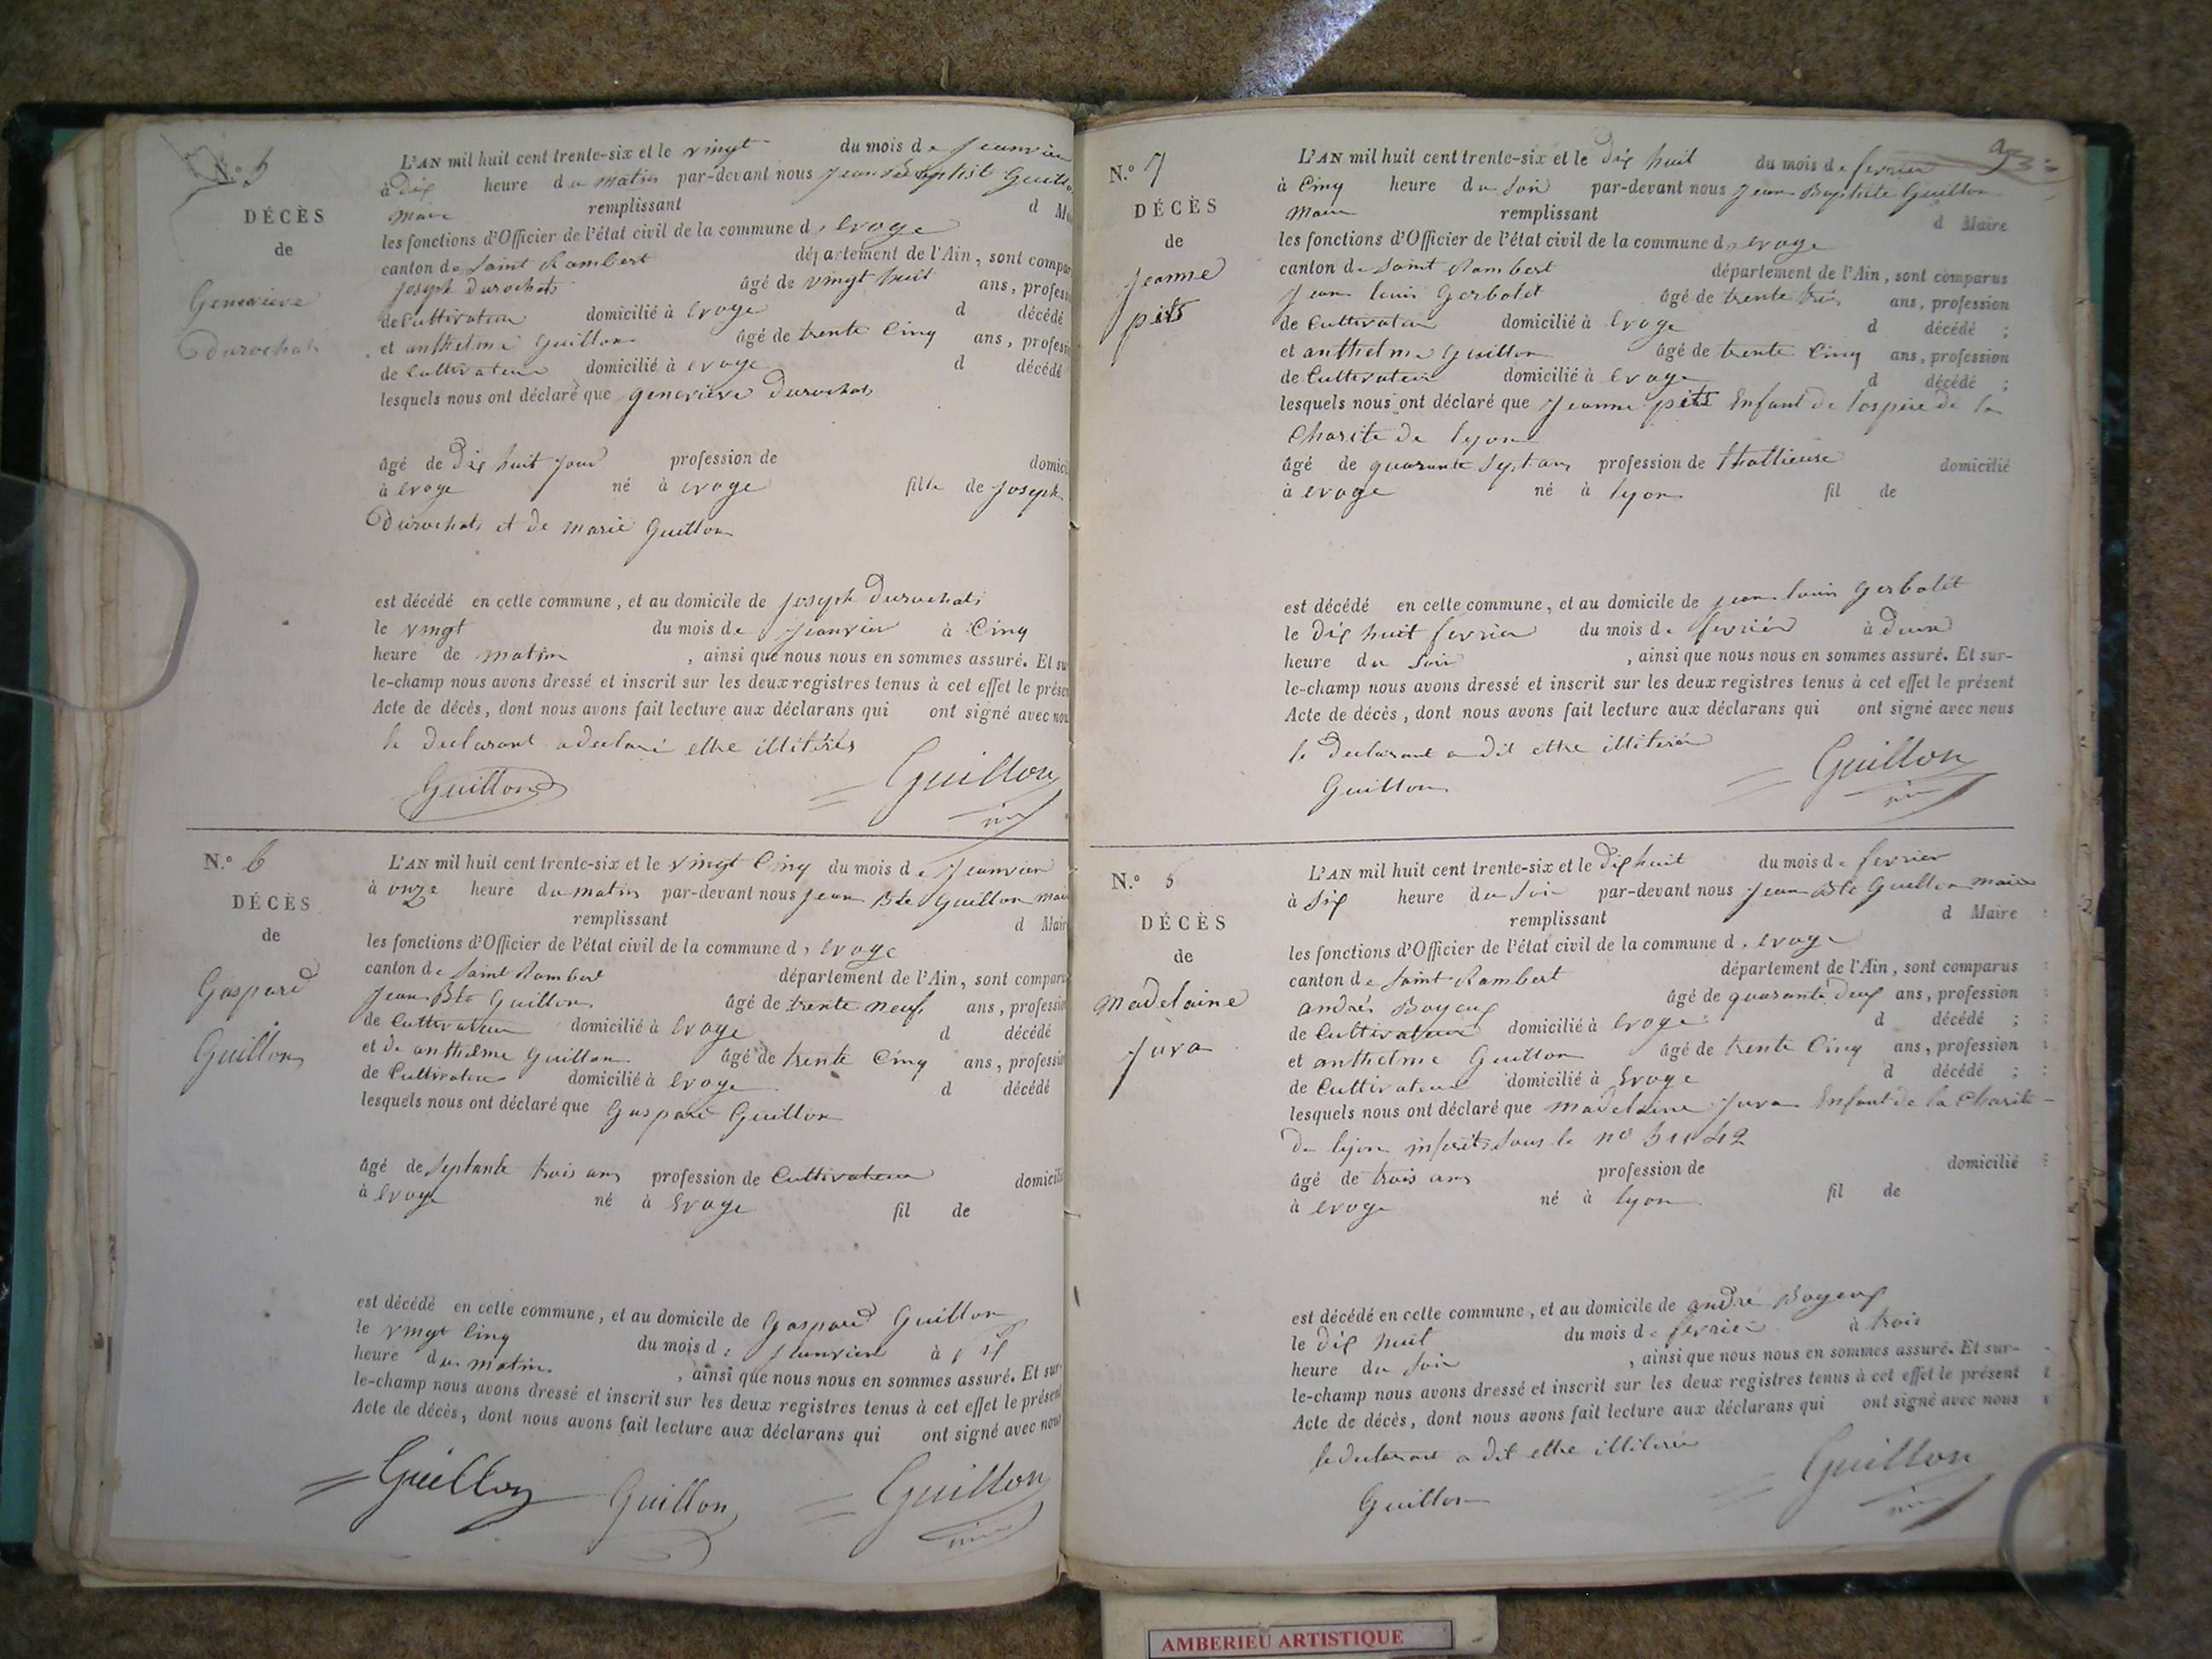 N.° 5
DÉCÈS
de
Genevieve
Durochat
L'AN mil huit cent trente-six et le vingt du mois de Jeanvier
à Dix heure du matin par-devant nous Jean Baptiste Guillon
Maire remplissant d Ma
les fonctions d'Officier de l'état civil de la commune d evoge
canton de Saint Rambert département de l'Ain, sont compar
Joseph Durochat âgé de vingt huit ans, profess
de Cultivateur domicilié à Evoge d décédé
et anthelme Guillon âgé de trente Cinq ans, profess
de Cultivateur domicilié à evoge d décédé
lesquels nous ont déclaré que genevieve Durochat
âgé de Dix huit jour profession de domici
à evoge né à evoge fille de Joseph
Durochat et de marie Guillon
est décédé en cette commune, et au domicile de Joseph Durochat
le vingt du mois de Jeanvier à Cinq
heure de matin , ainsi que nous nous en sommes assuré. Et su
le-champ nous avons dressé et inscrit sur les deux registres tenus à cet effet le prése
Acte de décès, dont nous avons fait lecture aux déclarans qui ont signé avec nou
le declarant a declaré ettre illiterés
Guillon Guillon
N.° 6
DÉCÈS
de
Gaspard
Guillon
L'AN mil huit cent trente-six et le vingt Cinq du mois de Jeanvier
à onze heure du matin par-devant nous Jean Bte Guillon mair
remplissant d Mair
les fonctions d'Officier de l'état civil de la commune d evoge
canton de Saint Rambert département de l'Ain, sont compar
Jean Bte Guillon âgé de trente neuf ans, professi
de Cultivateur domicilié à Evoge d décédé
et de anthelme Guillon âgé de trente Cinq ans, professi
de Cultivateur domicilié à Evoge d décédé
lesquels nous ont déclaré que Gaspard Guillon
âgé de Septante trois ans profession de Cultivateur domicili
à evoge né à Evoge fil de
est décédé en cette commune, et au domicile de Gaspard Guillon
le vingt Cinq du mois de Jeanvier à Six
heure du matin , ainsi que nous nous en sommes assuré. Et sur-
le-champ nous avons dressé et inscrit sur les deux registres tenus à cet effet le présent
Acte de décès, dont nous avons fait lecture aux déclarans qui ont signé avec nous
Guillon Guillon Guillon
N.° 7
DÉCÈS
de
Jeanne
pitt
L'AN mil huit cent trente-six et le Dix huit du mois de fevrier
à Cinq heure du Soir par-devant nous Jean Baptiste Guillon
Maire remplissant d Maire
les fonctions d'Officier de l'état civil de la commune d evoge
canton de Saint Rambert département de l'Ain, sont comparus
Jean louis Gerbolet âgé de trente ans, profession
de Cultivateur domicilié à Evoge d décédé ;
et anthelme Guillon âgé de trente Cinq ans, profession
de Cultivateur domicilié à Evoge d décédé ;
lesquels nous ont déclaré que Jeanne pitt Enfant de lospice de la
Charite de lyon
âgé de quarante Sept ans profession de domicilié
à evoge né à lyon fil de
est décédé en cette commune, et au domicile de jean louis Gerbolet
le dix huit fevrier du mois de fevrier à deux
heure du Soir , ainsi que nous nous en sommes assuré. Et sur-
le-champ nous avons dressé et inscrit sur les deux registres tenus à cet effet le présent
Acte de décès, dont nous avons fait lecture aux déclarans qui ont signé avec nous
le declarant a dit ettre illiteré
Guillon Guillon
N.°
DÉCÈS
de
Madelaine
Jura
L'AN mil huit cent trente-six et le Dix huit du mois de fevrier
à Six heure du Soir par-devant nous Jean Bte Guillon maire
remplissant d Maire
les fonctions d'Officier de l'état civil de la commune d evoge
canton de Saint Rambert département de l'Ain, sont comparus
andré Boyeux âgé de quarante deux ans, profession
de Cultivateur domicilié à evoge d décédé ;
et anthelme Guillon âgé de trente Cinq ans, profession
de Cultivateur domicilié à Evoge d décédé ;
lesquels nous ont déclaré que Madelaine Jura Enfant de la Charite
de lyon sous le no
âgé de trois ans profession de domicilié
à evoge né à lyon fil de
est décédé en cette commune, et au domicile de andré Boyeux
le dix huit du mois de fevrier à trois
heure du Soir , ainsi que nous nous en sommes assuré. Et sur-
le-champ nous avons dressé et inscrit sur les deux registres tenus à cet effet le présent
Acte de décès, dont nous avons fait lecture aux déclarans qui ont signé avec nous
le declarant a dit ettre illiteré
Guillon Guillon
AMBERIEU ARTISTIQUE